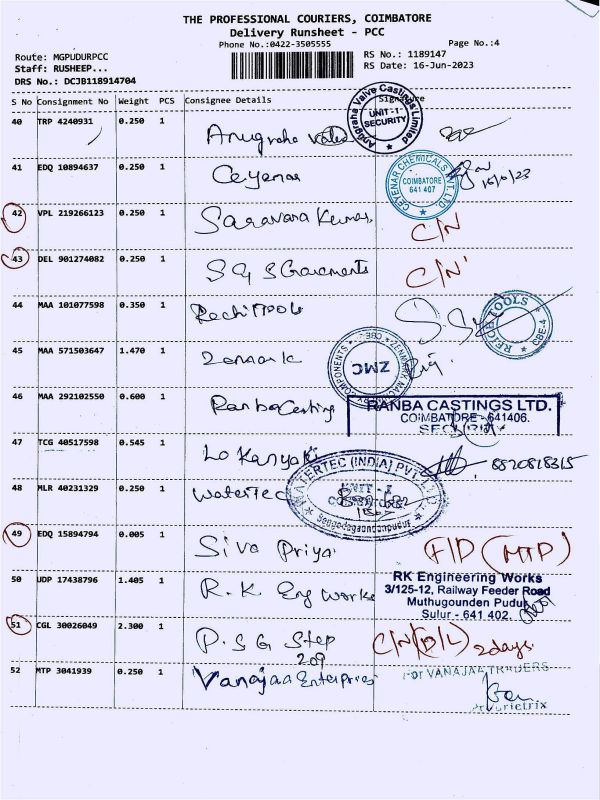 THE PROFESSIONAL COURIERS, COIMBATORE
Delivery Runsheet - PCC
Phone No.:0422-3505555
Page No.:4
Route: MGPUDURPCC
RS No.: 1189147
Staff: RUSHEEP...
RS Date: 16-Jun-2023
DRS No.: DCJB118914704
S No Consignment No Weight PCS Consignee Details Signature
40 TRP 4240931 0.250 1 Anugraha
Anugraha Valve Castings Limited
UNIT-I
SECURITY
41 EDQ 10894637 0.250 1 Ceyenar
CEYENAR CHEMICALS PVT. LTD.
COIMBATORE
641 407
42 VPL 219266123 0.250 1 Saravana Kumar C/N
43 DEL 901274082 0.250 1 S G S Garments C/N
44 MAA 101077598 0.350 1
TOOLS
CBE-4
45 MAA 571503647 1.470 1 Zenmark
ZMC
COMPONENTS
46 MAA 292102550 0.600 1 Ranba Casting
RANBA CASTINGS LTD.
COIMBATORE - 641406.
SECURITY
47 TCG 40517598 0.545 1 Lo Kanyaki 8820818315
48 MLR 40231329 0.250 1 Watertec
WATERTEC (INDIA) PVT. LTD.
UNIT - I
Sengodagoundanpudur
49 EDQ 15894794 0.005 1 Siva Priya F/D (MTP)
50 UDP 17438796 1.405 1 R. K Eng works
RK Engineering Works
3/125-12, Railway Feeder Road
Muthugounden Pudur
Sulur - 641 402.
51 CGL 30026049 2.300 1 P. S G Step C/N (D/L) 2 days
209
52 MTP 3041939 0.250 1 Vanajaa Enterprises
For VANAJAA TRADERS
Proprietrix